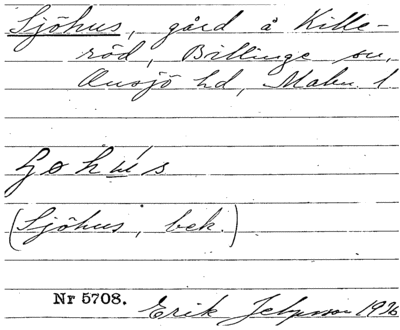 Sjöhus, gård å Kille-
röd, Billinge sn,
Onsjö hd, Malm. l
(Sjöhus, bek.)
Nr 5708. Erik 1936